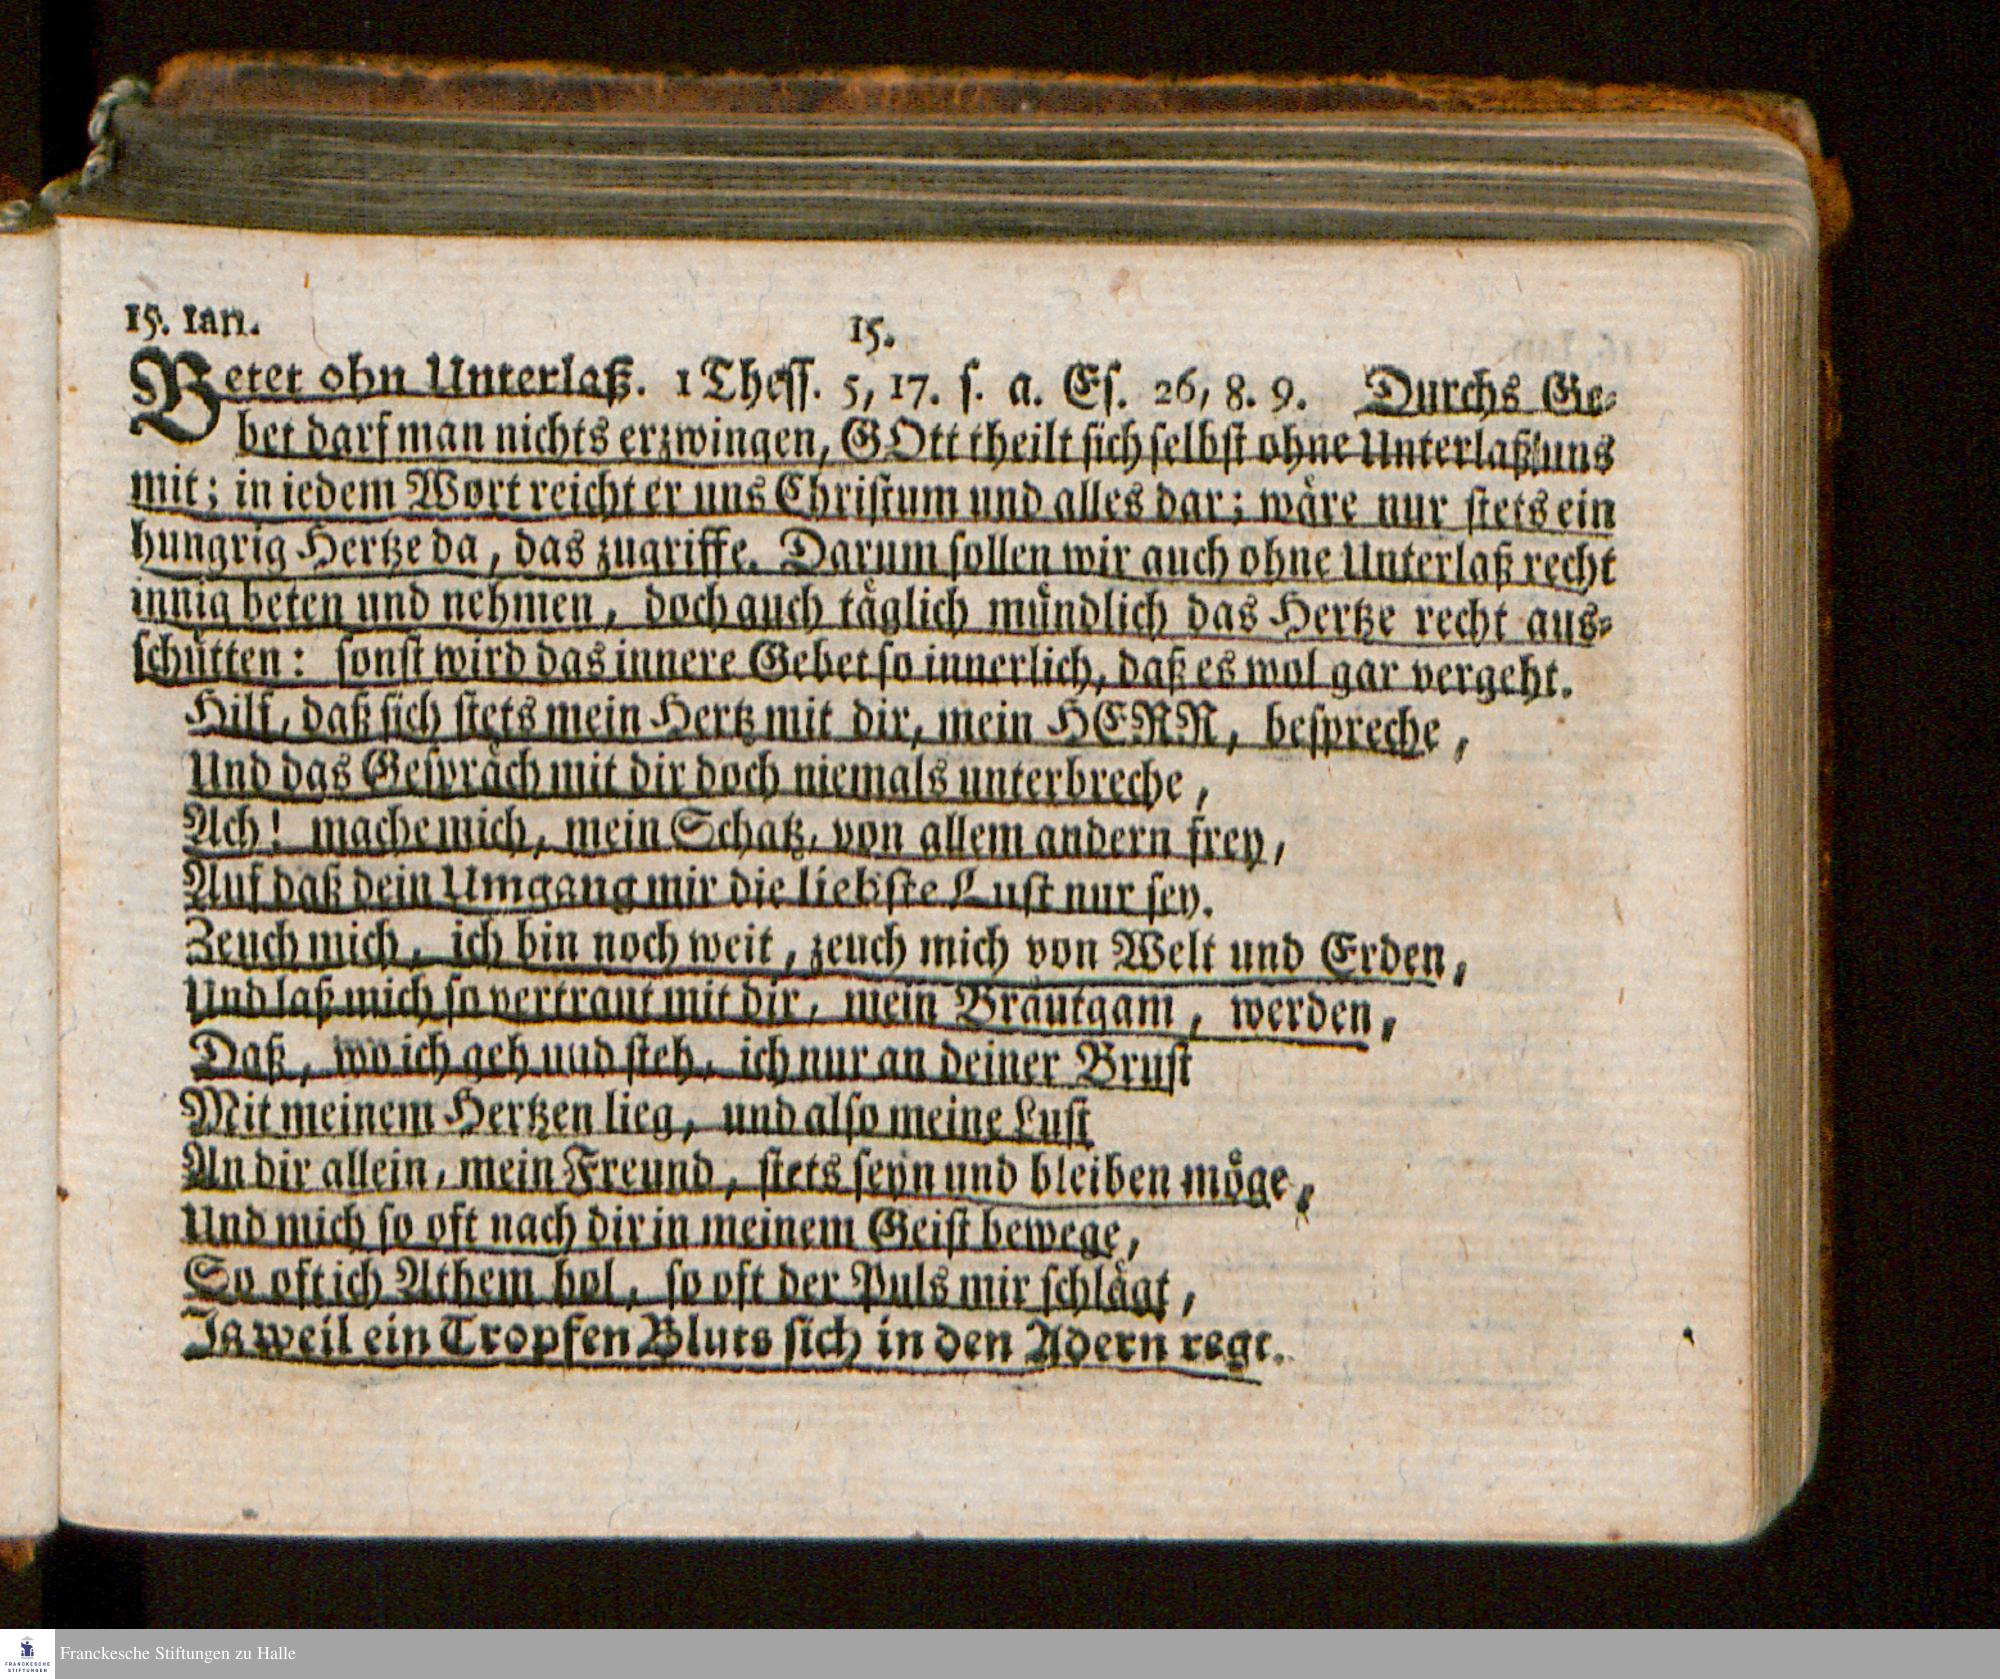 15. Ian.
15.
Betet ohn Unterlaß. 1 Thess. 5, 17. s. a. Es. 26, 8. 9. Durchs Ge-
bet darf man nichts erzwingen, GOtt theilt sich selbst ohne Unterlaß uns
mit; in iedem Wort reicht er uns Christum und alles dar; wäre nur stets ein
hungrig Hertze da, das zugriffe. Darum sollen wir auch ohne Unterlaß recht
innig beten und nehmen, doch auch täglich mündlich das Hertze recht aus-
schütten: sonst wird das innere Gebet so innerlich, daß es wol gar vergeht.
Hilf, daß sich stets mein Hertz mit dir, mein HERR, bespreche,
Und das Gespräch mit dir doch niemals unterbreche,
Ach! mache mich, mein Schatz, von allem andern frey,
Auf daß dein Umgang mir die liebste Lust nur sey.
Zeuch mich, ich bin noch weit, zeuch mich von Welt und Erden,
Und laß mich so vertraut mit dir, mein Bräutgam, werden,
Daß, wo ich geh und steh, ich nur an deiner Brust
Mit meinem Hertzen lieg, und also meine Lust
An dir allein, mein Freund, stets seyn und bleiben möge,
Und mich so oft nach dir in meinem Geist bewege,
So oft ich Athem hol, so oft der Puls mir schlägt,
Ja weil ein Tropfen Bluts sich in den Adern regt.
FRANCKESCHE
STIFTUNGEN
Franckesche Stiftungen zu Halle